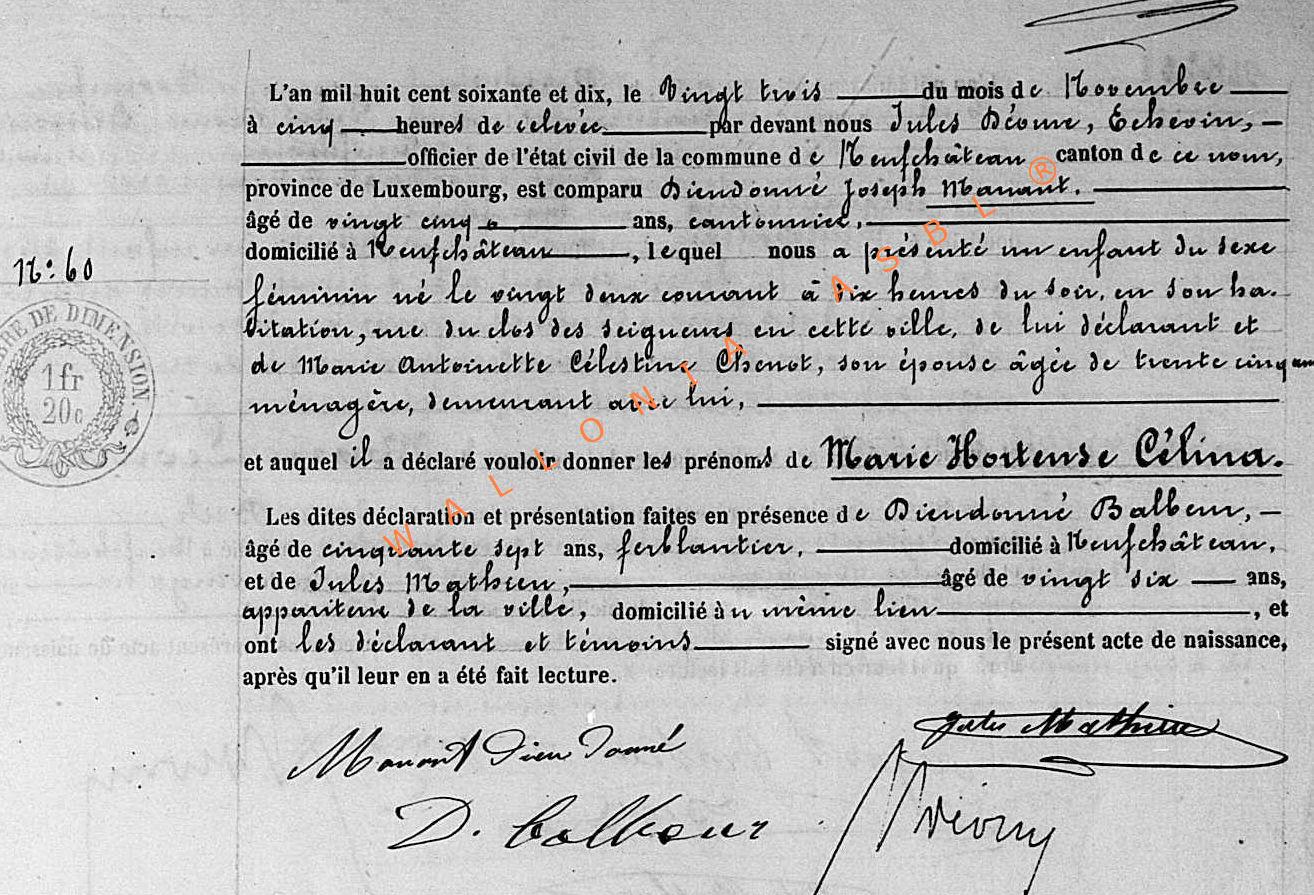 L'an mil huit cent soixante et dix, le Vingt trois du mois de Novembre
à cinq heures de relevée par devant nous Jules Déome, Echevin,
officier de l'état civil de la commune de Neufchâteau canton de ce nom,
province de Luxembourg, est comparu Dieudonné Joseph Manant.
âgé de vingt cinq ans, cantonnier,
domicilié à Neufchâteau, lequel nous a présenté un enfant du sexe
N° 60
féminin né le vingt deux courant à dix heures du soir, en son ha-
bitation, rue du clos des seigneurs en cette ville, de lui déclarant et
de Marie Antoinette Célestine Chenot, son épouse âgée de trente cinq ans
ménagère, demeurant avec lui,
TIMBRE DE DIMENSION
1 fr
20c
et auquel il a déclaré vouloir donner les prénoms de Marie Hortense Célina.
Les dites déclaration et présentation faites en présence de Dieudonné Balbeur,
âgé de cinquante sept ans, ferblantier, domicilié à Neufchâteau,
et de Jules Mathieu, âgé de vingt six ans,
appariteur de la ville, domicilié au même lieu, et
ont les déclarant et témoins signé avec nous le présent acte de naissance,
après qu'il leur en a été fait lecture.
Manant Dieudonné
Jules Mathieu
D. Balbeur
WALLONIA ASBL ®